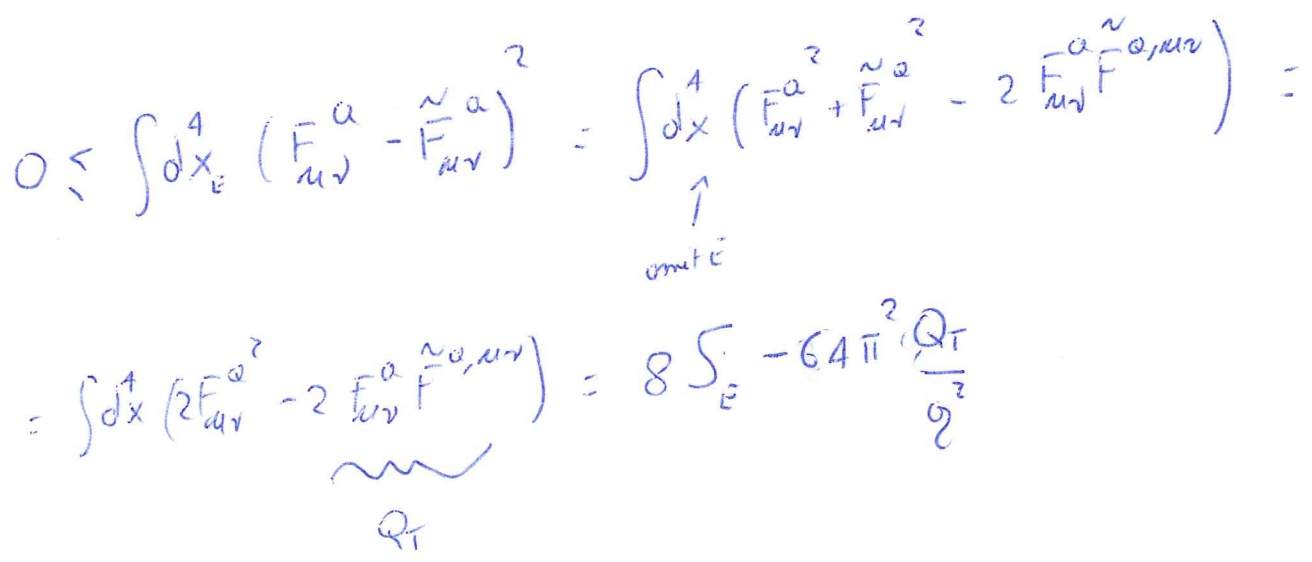 0 ≤ ∫d⁴x_E (F^a_{μν} - F̃^a_{μν})² = ∫d⁴x (F^a_{μν}² + F̃^a_{μν}² - 2 F^a_{μν} F̃^{a,μν}) =
↑
omit E
= ∫d⁴x (2F^a_{μν}² - 2 F^a_{μν} F̃^{a,μν}) = 8 S_E - 64π² Q_T/g²
Q_T